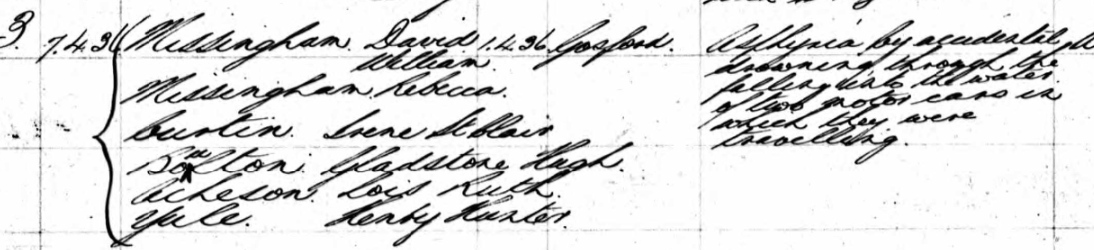 3. 7.4.36 Missingham David 1.4.36 Gosford. Asphyxia by accidental
William. drowning through the
Missingham Rebecca. falling into the water
of two motor cars in
Curtin. Irene St Blair which they were
travelling.
Bolton. Gladstone Hugh.
Acheson. Lois Ruth.
Yule. Henry Hunter.